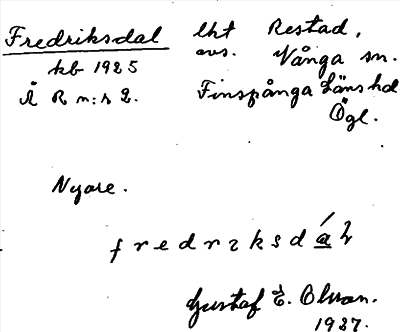 Fredriksdal lht Restad,
avs. Vånga sn.
kb 1925
Å R n:r 2. Finspånga Läns hd
Ögl.
Nyare.
fredrɪksdáɫ
Gustaf E. Olsson.
1927.